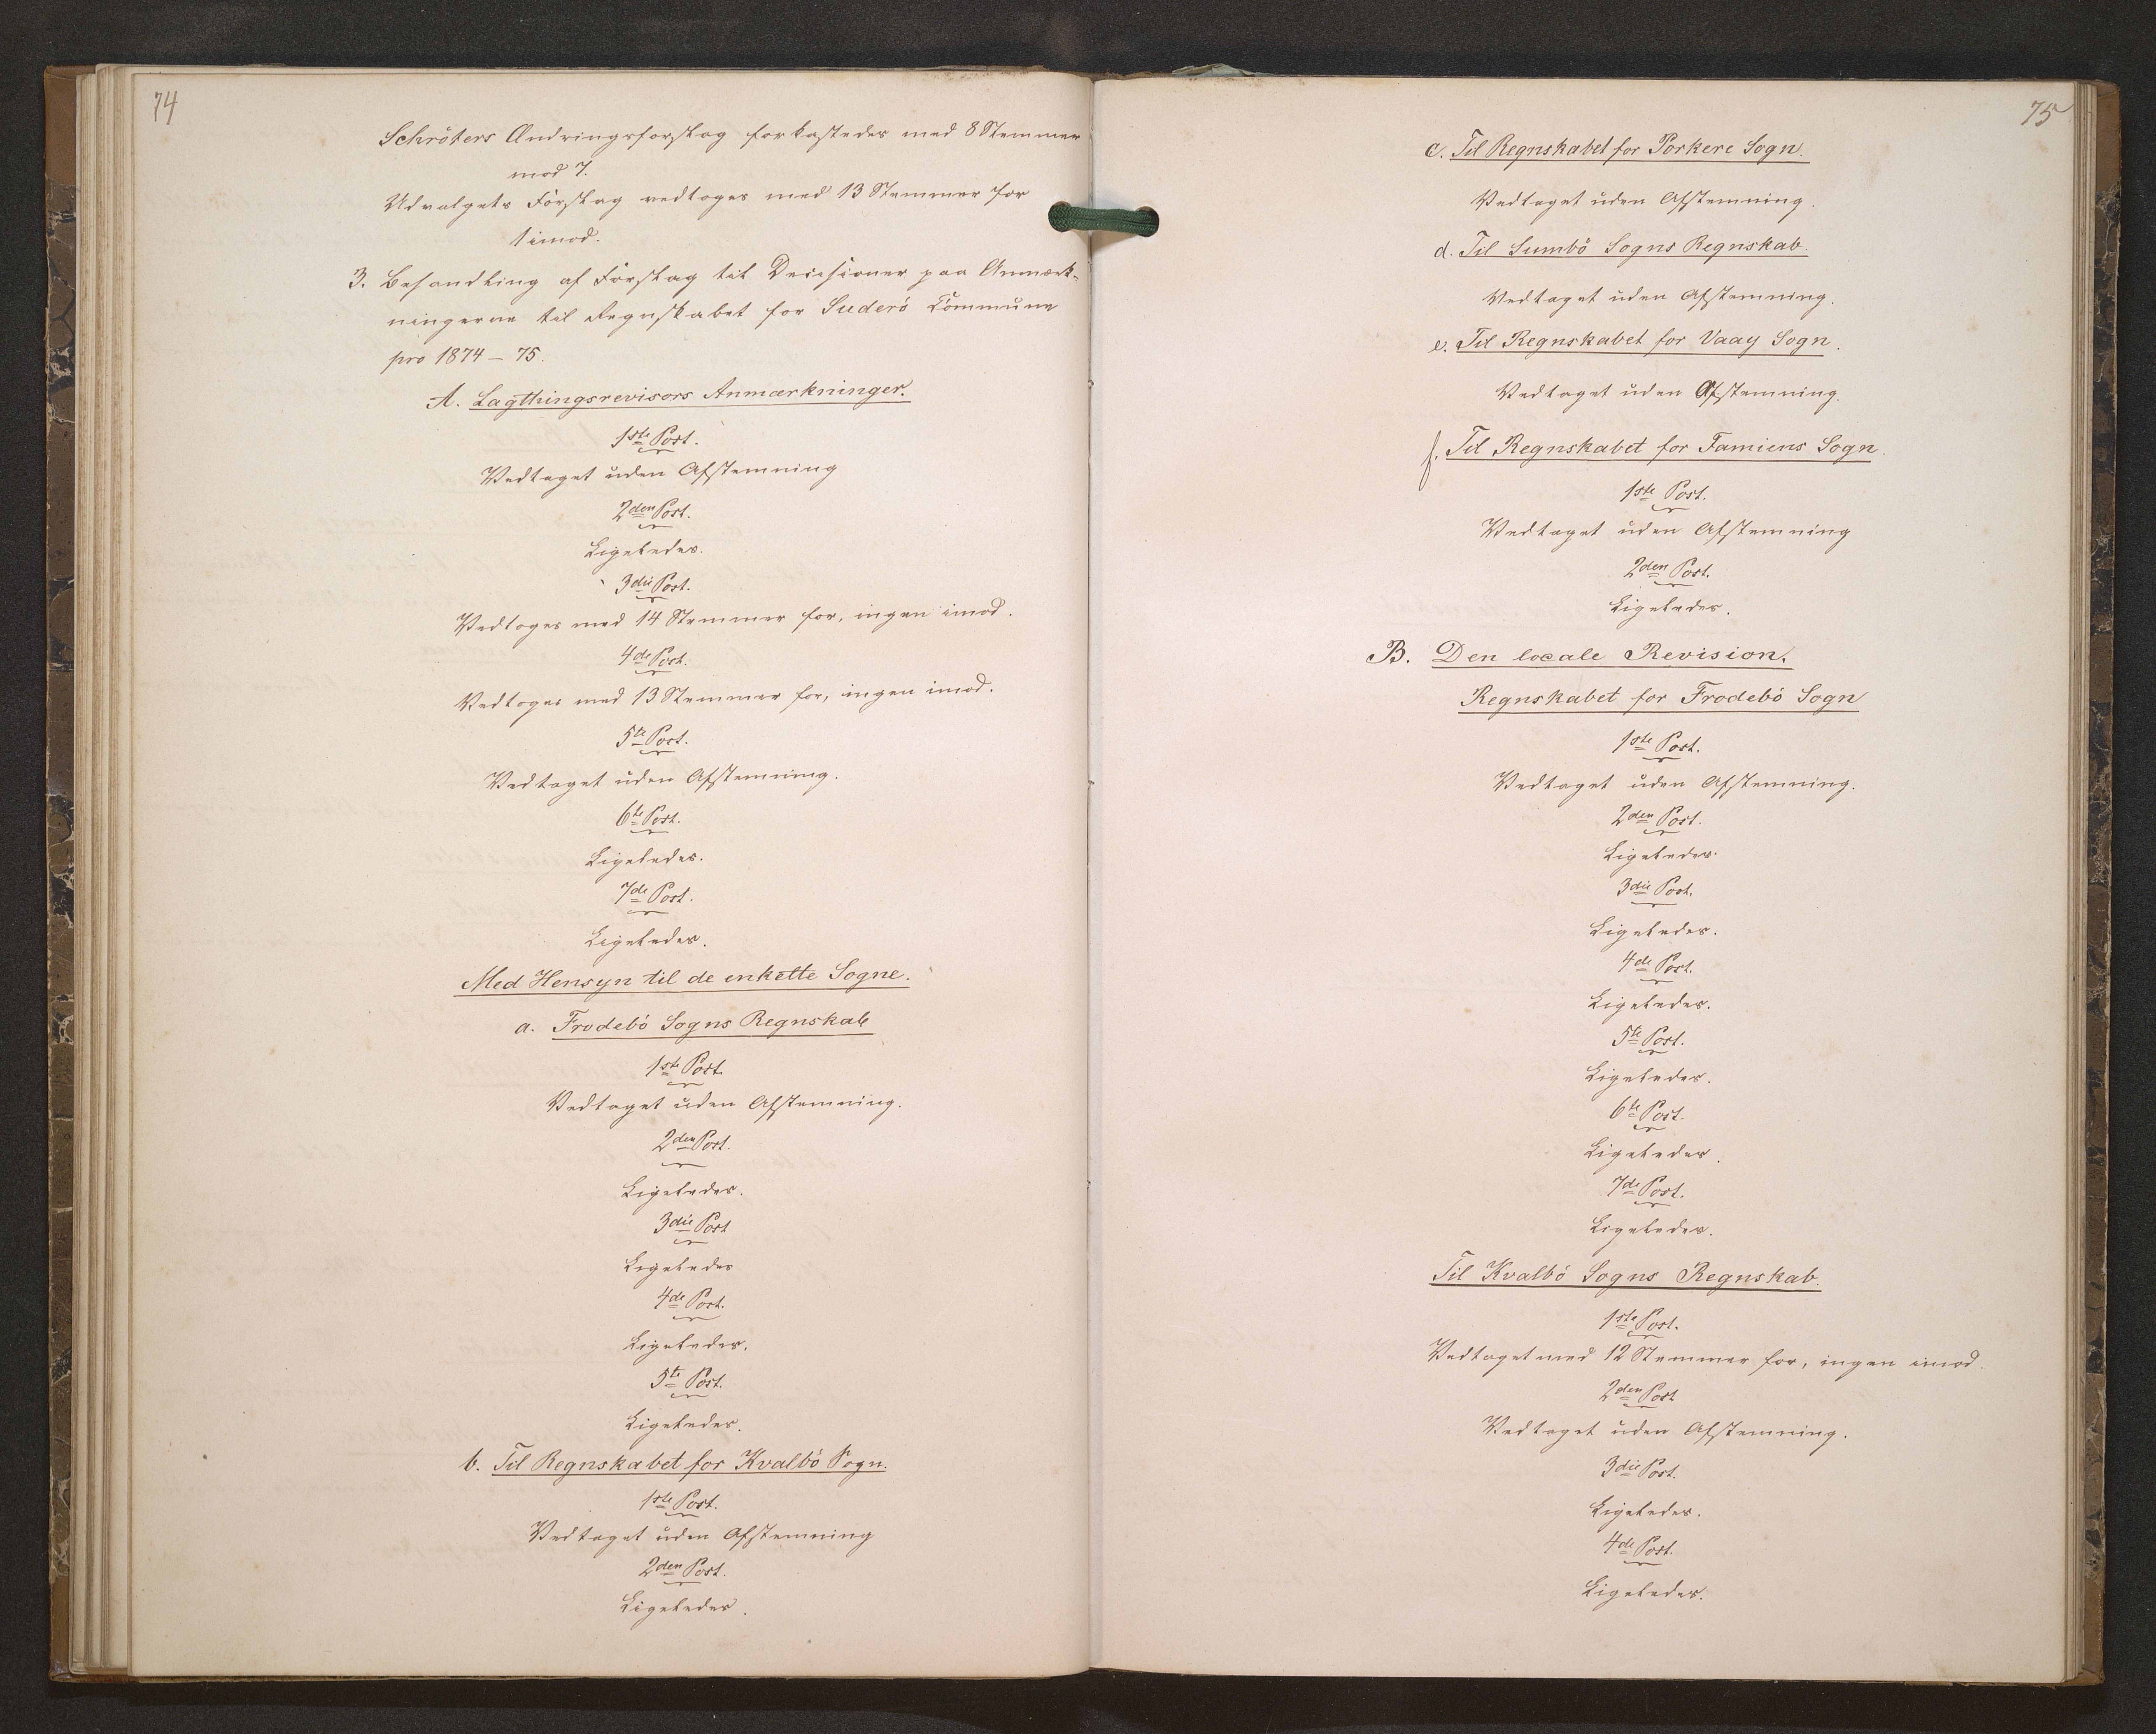 74
Schröters Ændringsforslag forkastedes med 8 Stemmer
mod 7.
Udvalgets Forslag vedtoges med 13 Stemmer for
1 imod.
3. Behandling af Forslag til Decisioner paa Anmærk-
ningerne til Regnskabet for Suderö Commune
pro 1874-75.
A. Lagthingsrevisors Anmærkninger.
1ste Post.
Vedtaget uden Afstemning
2den Post.
Ligeledes.
3die Post.
Vedtoges med 14 Stemmer for, ingen imod.
4de Post.
Vedtoges med 13 Stemmer for, ingen imod.
5te Post.
Vedtaget uden Afstemning.
6te Post.
Ligeledes.
7de Post.
Ligeledes.
Med Hensyn til de enkelte Sogne.
a. Frodebö Sogns Regnskab
1ste Post.
Vedtaget uden Afstemning.
2den Post.
Ligeledes.
3die Post
Ligeledes
4de Post.
Ligeledes.
5te Post.
Ligeledes.
b. Til Regnskabet for Kvalbö Sogn.
1ste Post.
Vedtaget uden Afstemning
2den Post.
Ligeledes.
75
c. Til Regnskabet for Porkere Sogn.
Vedtaget uden Afstemning.
d. Til Sumbö Sogns Regnskab.
Vedtaget uden Afstemning.
e. Til Regnskabet for Vaag Sogn.
Vedtaget uden Afstemning.
f. Til Regnskabet for Famiens Sogn.
1ste Post.
Vedtaget uden Afstemning
2den Post.
Ligeledes.
B. Den locale Revision.
Regnskabet for Frodebö Sogn
1ste Post.
Vedtaget uden Afstemning.
2den Post.
Ligeledes.
3die Post.
Ligeledes.
4de Post.
Ligeledes.
5te Post.
Ligeledes.
6te Post.
Ligeledes.
7de Post.
Ligeledes.
Til Kvalbö Sogns Regnskab.
1ste Post.
Vedtaget med 12 Stemmer for, ingen imod.
2den Post
Vedtaget uden Afstemning.
3die Post.
Ligeledes.
4de Post.
Ligeledes.